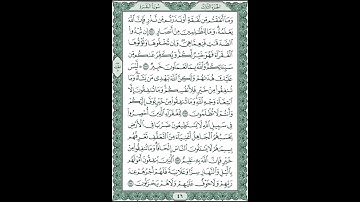 الجزء الثالث سورة البقرة
وَمَآ أَنفَقْتُم مِّن نَّفَقَةٍ أَوْ نَذَرْتُم مِّن نَّذْرٍ فَإِنَّ ٱللَّهَ
يَعْلَمُهُۥ وَمَا لِلظَّٰلِمِينَ مِنْ أَنصَارٍ ٢٧٠ إِن تُبْدُوا۟
ٱلصَّدَقَٰتِ فَنِعِمَّا هِىَ وَإِن تُخْفُوهَا وَتُؤْتُوهَا
ٱلْفُقَرَآءَ فَهُوَ خَيْرٌ لَّكُمْ وَيُكَفِّرُ عَنكُم مِّن
سَيِّـَٔاتِكُمْ وَٱللَّهُ بِمَا تَعْمَلُونَ خَبِيرٌ ٢٧١ لَّيْسَ
عَلَيْكَ هُدَىٰهُمْ وَلَٰكِنَّ ٱللَّهَ يَهْدِى مَن يَشَآءُ وَمَا
تُنفِقُوا۟ مِنْ خَيْرٍ فَلِأَنفُسِكُمْ وَمَا تُنفِقُونَ إِلَّا
ٱبْتِغَآءَ وَجْهِ ٱللَّهِ وَمَا تُنفِقُوا۟ مِنْ خَيْرٍ يُوَفَّ إِلَيْكُمْ
وَأَنتُمْ لَا تُظْلَمُونَ ٢٧٢ لِلْفُقَرَآءِ ٱلَّذِينَ أُحْصِرُوا۟
فِى سَبِيلِ ٱللَّهِ لَا يَسْتَطِيعُونَ ضَرْبًا فِى ٱلْأَرْضِ
يَحْسَبُهُمُ ٱلْجَاهِلُ أَغْنِيَآءَ مِنَ ٱلتَّعَفُّفِ تَعْرِفُهُم
بِسِيمَٰهُمْ لَا يَسْـَٔلُونَ ٱلنَّاسَ إِلْحَافًا وَمَا تُنفِقُوا۟ مِنْ
خَيْرٍ فَإِنَّ ٱللَّهَ بِهِۦ عَلِيمٌ ٢٧٣ ٱلَّذِينَ يُنفِقُونَ أَمْوَٰلَهُم
بِٱلَّيْلِ وَٱلنَّهَارِ سِرًّا وَعَلَانِيَةً فَلَهُمْ أَجْرُهُمْ عِندَ
رَبِّهِمْ وَلَا خَوْفٌ عَلَيْهِمْ وَلَا هُمْ يَحْزَنُونَ ٢٧٤
٤٦